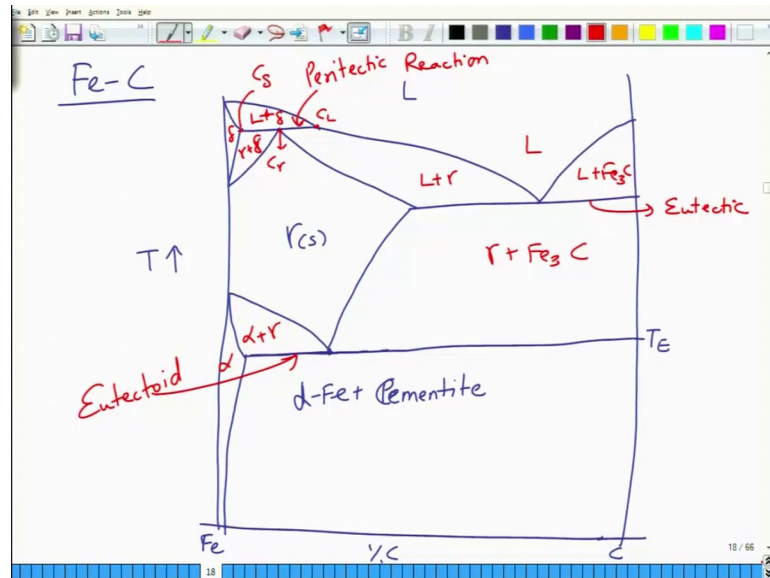 File Edit View Insert Actions Tools Help
B I
Fe-C
Cδ
Peritectic Reaction
L
L+δ
CL
δ
γ+δ
Cγ
L
L+γ
L+Fe3C
Eutectic
γ(s)
γ+Fe3C
T↑
α+γ
TE
α
Eutectoid
α-Fe+Cementite
Fe
%C
C
18 / 66
18